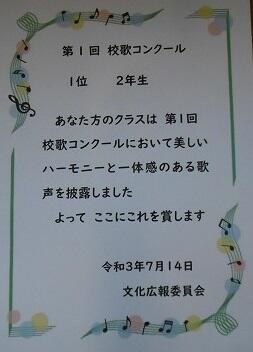 第1回 校歌コンクール
1位 2年生
あなた方のクラスは 第1回
校歌コンクールにおいて美しい
ハーモニーと一体感のある歌
声を披露しました
よって ここにこれを賞します
令和3年7月14日
文化広報委員会